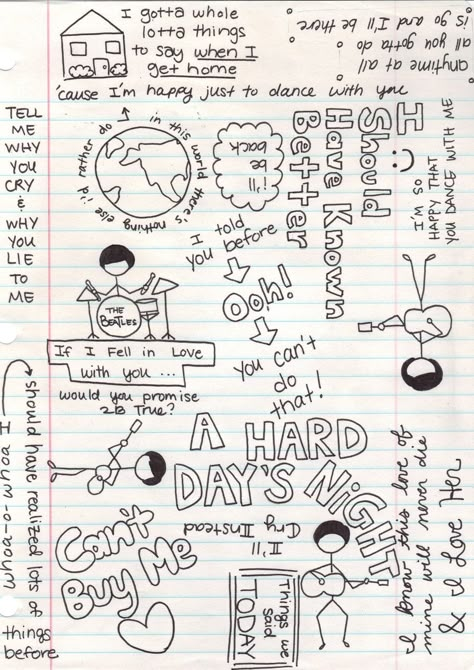 I gotta whole
lotta things
to say when I
get home
anytime at all
all you gotta do
is go and I'll be there
'cause I'm happy just to dance with you
TELL
ME
WHY
YOU
CRY
&
WHY
YOU
LIE
TO
ME
in this world there's nothing else i'd rather do
i'll
be
back
I
Should
Have Known
Better
I'M SO
HAPPY THAT
YOU DANCE WITH ME
I told
you before
Ooh!
you can't
do
that!
THE
BEATLES
If I Fell in Love
with you ...
would you promise
2B True?
A HARD
DAY'S NIGHT
whoa-o-whoa I
should have realized lots of
things
before
Can't
Buy Me
I'll
Cry Instead
Things we
Said
TODAY
I know this love of
mine will never die
& I Love Her